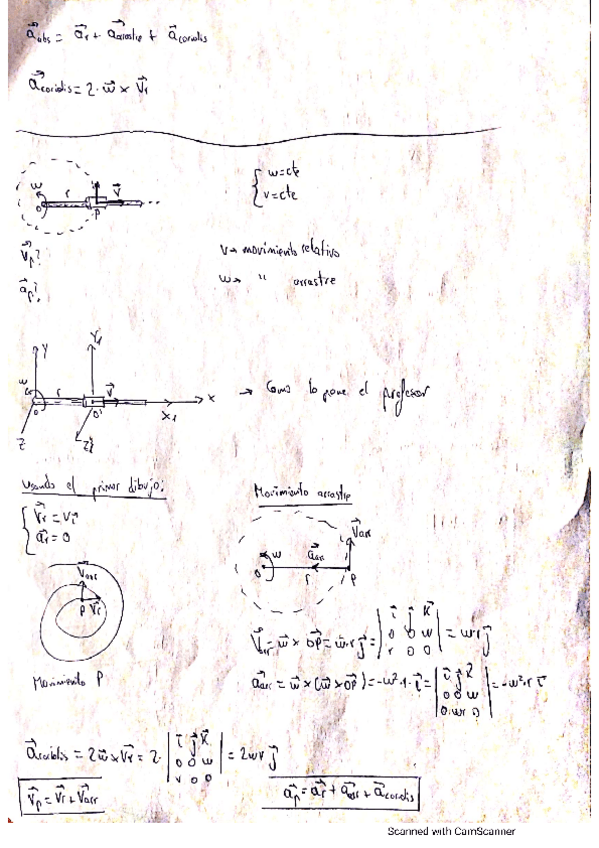 a⃗abs = a⃗r + a⃗arrastre + a⃗coriolis
a⃗coriolis = 2 · w⃗ x v⃗r
w r v⃗
O P
{ w = cte
{ v = cte
v⃗p?
a⃗p?
v → movimiento relativo
w → " arrastre
Y Y1
w r v⃗ X
O O' X1
Z Z1
→ Como lo pone el profesor
Usando el primer dibujo:
{ v⃗r = v i⃗
{ a⃗r = 0
Movimiento arrastre
v⃗arr
w a⃗arr
O r P
v⃗arr
P v⃗r
Movimiento P
v⃗arr = w⃗ x OP⃗ = w·r j⃗ = | i⃗ j⃗ k⃗ | 0 0 w | r 0 0 | = w·r j⃗
a⃗arr = w⃗ x (w⃗ x OP⃗) = -w²·r·i⃗ = | i⃗ j⃗ k⃗ | 0 0 w | 0 wr 0 | = -w²·r i⃗
a⃗coriolis = 2w⃗ x v⃗r = 2· | i⃗ j⃗ k⃗ | 0 0 w | v 0 0 | = 2wv j⃗
v⃗p = v⃗r + v⃗arr
a⃗p = a⃗r + a⃗arr + a⃗coriolis
Scanned with CamScanner